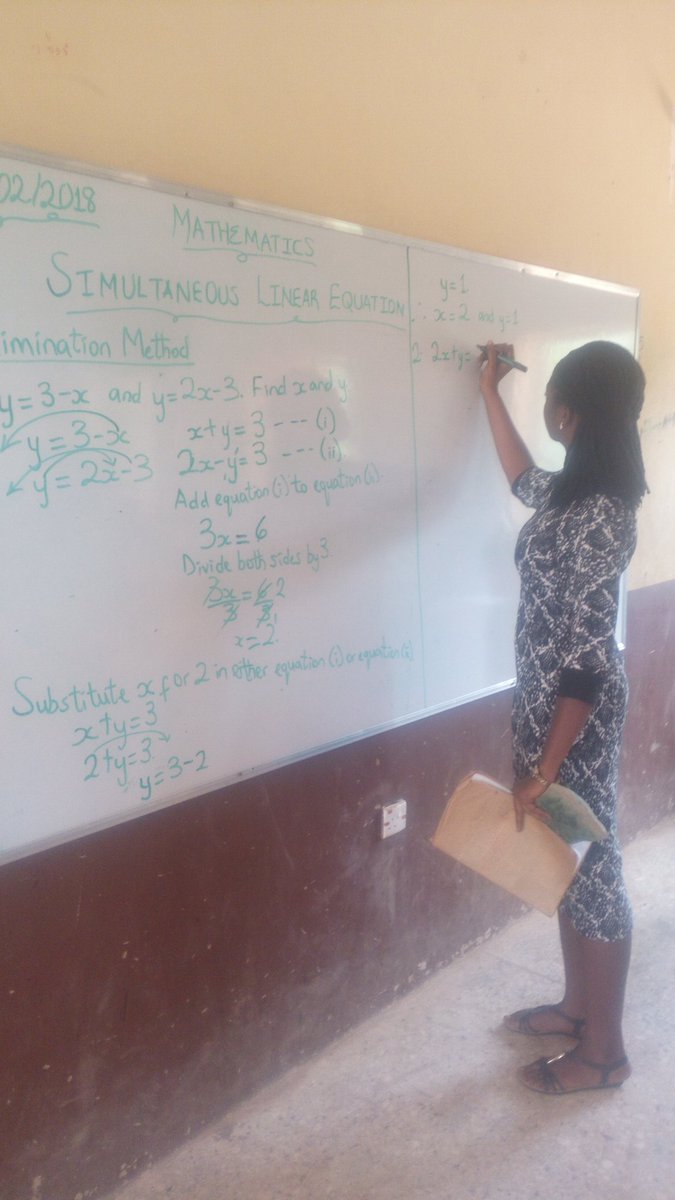 02/2018
MATHEMATICS
SIMULTANEOUS LINEAR EQUATION
imination Method
y=3-x and y=2x-3. Find x and y.
y=3-x
y=2x-3
x+y=3 --- (i)
2x-y=3 --- (ii).
Add equation (i) to equation (ii).
3x=6
Divide both sides by 3.
3x = 6 2
3 3 1
x=2.
Substitute x for 2 in either equation (i) or equation (ii)
x+y=3
2+y=3
y=3-2
y=1
∴ x=2 and y=1
2. 2x+y=